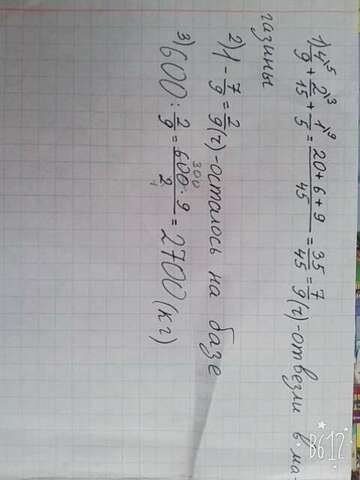 1) 4/9⁵ + 2/15³ + 1/5⁹ = (20+6+9)/45 = 35/45 = 7/9 (ч) - отвезли в ма-
газины
2) 1 - 7/9 = 2/9 (ч) - осталось на базе
3) 600 : 2/9 = (600³⁰⁰ · 9)/2₁ = 2700 (кг)
B612